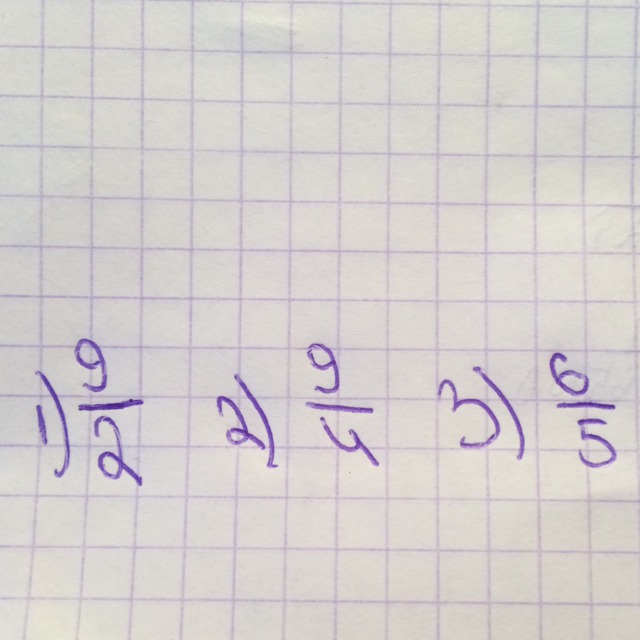 1) 9/2 2) 9/4 3) 6/5